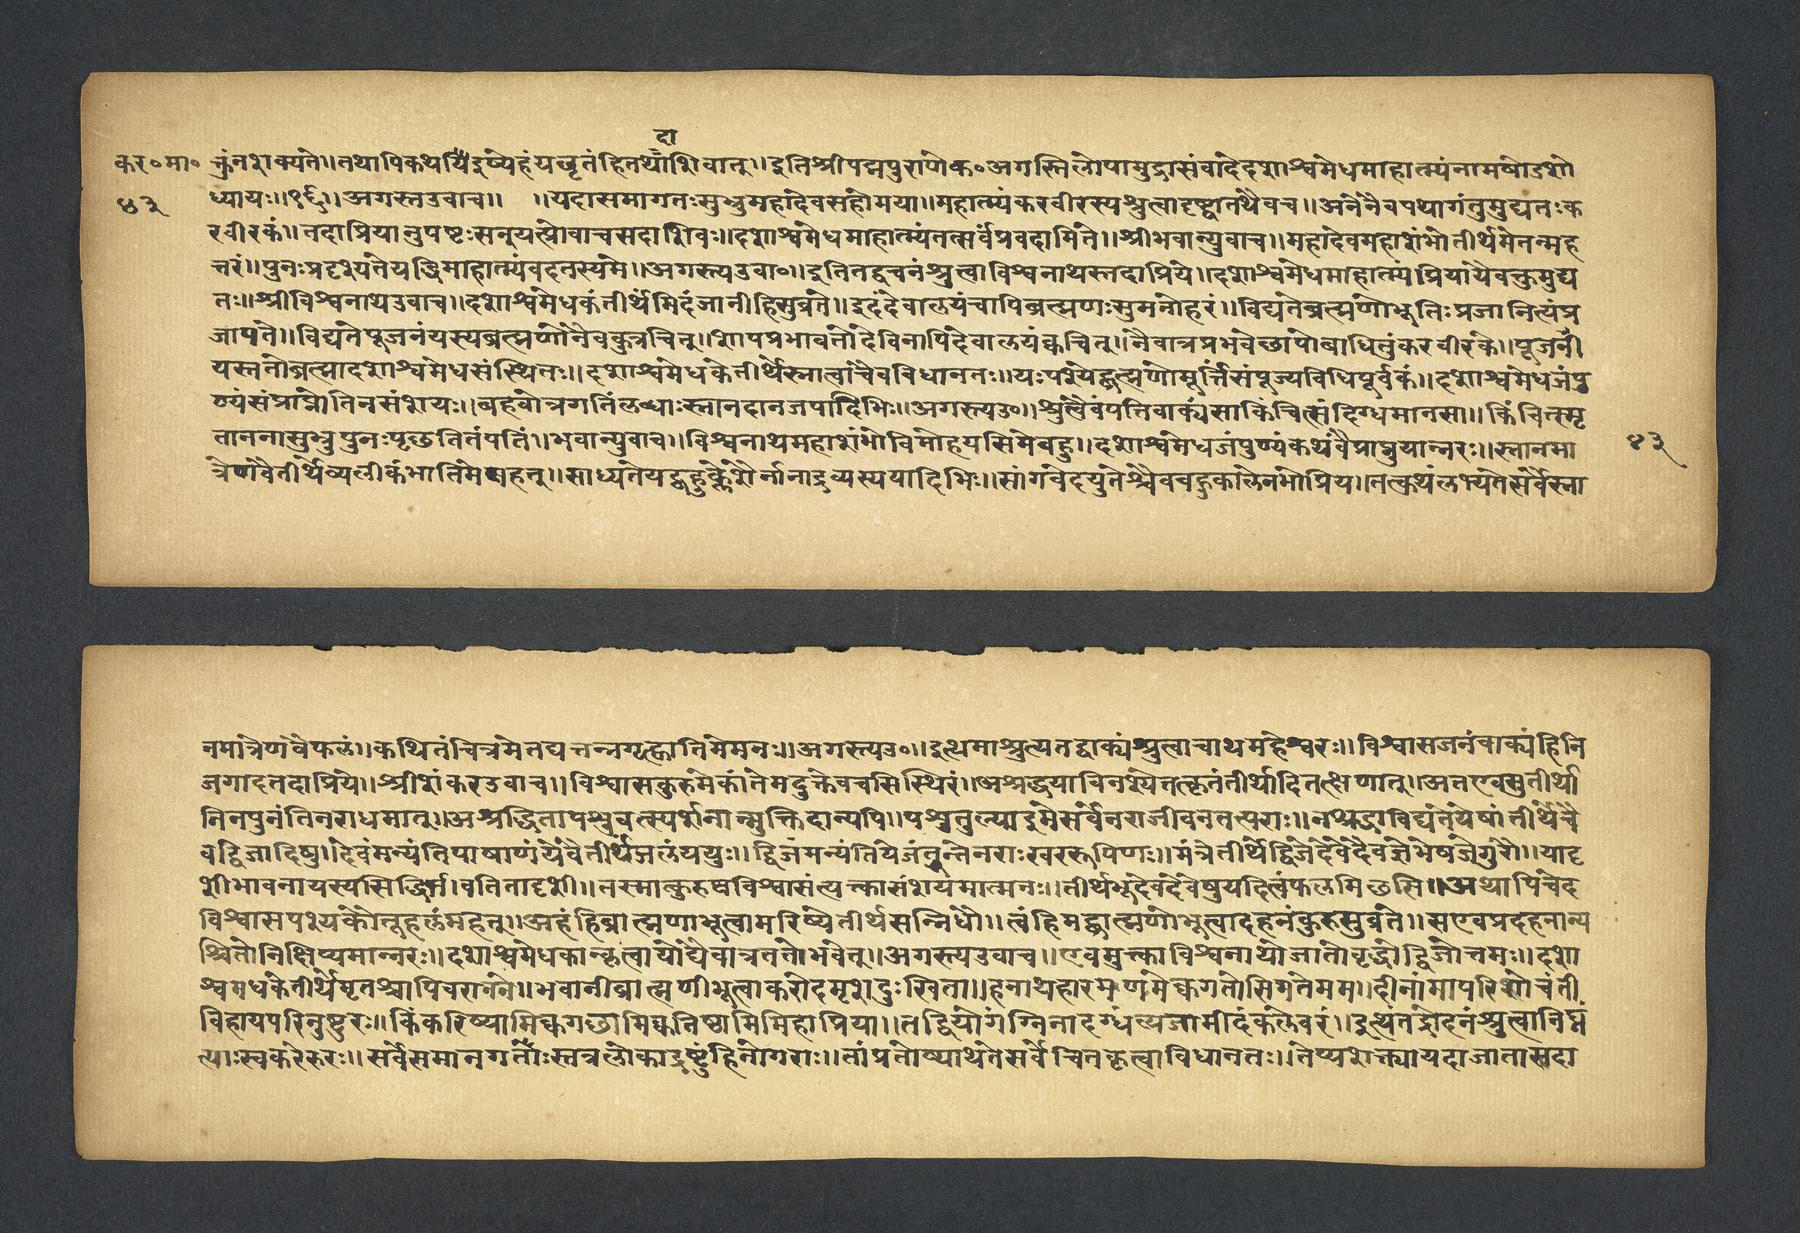 दा
कर॰मा॰ क्तुंनशक्यते॥तथापिकथयिदुष्येहंयच्छृतंहितथाशिवात्॥इतिश्रीपद्मपुराणेक॰अगस्तिलोपामुद्रासंवादेदशाश्वमेधमाहात्म्यंनामषोडशो
४३ ध्यायः॥१६॥अगस्तउवाच॥ ॥यदासमागतःसुभ्रुमहादेवसहोमया॥महात्म्यंकरवीरस्यश्रुत्वादृष्ट्वातथैवच॥अनेनैवपथागंतुमुद्यतःक
रवीरकं॥तदाप्रियानुपष्टःसनुयत्प्रोवाचसदाशिवः॥दशाश्वमेधमाहात्म्यंतत्सर्वंप्रवदामिते॥श्रीभवान्युवाच॥महादेवमहाशंभोतीर्थमेतन्मह
त्तरं॥पुनःप्रदृश्यतेयद्धिमाहात्म्यंवदतस्यमे॥अगस्त्यउवा॰॥इतितद्वचनंश्रुत्वाविश्वनाथस्तदाप्रिये॥दशाश्वमेधमाहात्म्यंप्रियायैवक्तुमुद्य
तः॥श्रीविश्वनाथउवाच॥दशाश्वमेधकंतीर्थमिदंजानीहिसुव्रते॥इदंदेवालयंचापिब्रह्मणःसुमनोहरं॥विद्यतेब्रह्मणोभूतिःप्रजानित्यंप्र
जापते॥विद्यतेपूजनंयस्यब्रह्मणोनैवकुत्रचित्॥शापप्रभावतोदेविनापिदेवालयंक्वचित्॥नैवात्रप्रभवेछापोबाधितुंकरवीरके॥पूजनी
यस्ततोब्रह्मादशाश्वमेधसंस्थितः॥दशाश्वमेधकेतीर्थेस्नात्वाचैवविधानतः॥यःपश्येद्ब्रह्मणोमूर्त्तिंसंपूज्यविधिपूर्वकं॥दशाश्वमेधजंपु
ण्यंसंप्राप्नोतिनसंशयः॥बहवोत्रगतिंलब्धाःस्नानदानजपादिभिः॥अगस्त्यउ॰॥श्रुत्वैवंपतिवाक्यंसाकिंचित्संदिग्धमानसा॥किंचित्स्मृ
ताननासुभ्रुपुनःपृछतितंपतिं॥भवान्युवाच॥विश्वनाथमहाशंभोविमोहयसिमेबहु॥दशाश्वमेधजंपुण्यंकथंवैप्राप्नुयान्नरः॥स्नानमा ४३
त्रेणवैतीर्थेव्यलीकंभातिमेमहत्॥साध्यतेयद्बहुक्लेशैर्नानाद्रव्यस्ययादिभिः॥सांगवेदयुतैश्चैवबहुकालेनभोप्रिय॥तत्कथंलभ्यतेसर्वेस्ना
नमात्रेणवैफलं॥कथितंचित्रमेतद्यत्तन्नगृह्णातिमेमनः॥अगस्त्यउ॰॥इत्थमाश्रुत्यतद्वाक्यंश्रुत्वाचाथमहेश्वरः॥विश्वासजनंवाक्यंहिनि
जगादतदाप्रिये॥श्रीशंकरउवाच॥विश्वासकुरुमेकांतेमदुक्तेवचसिस्थिरं॥अश्रद्धयाविनश्येतत्कृतंतीर्थादितत्क्षणात्॥अतएवसुतीर्था
निनपुनंतिनराधमात्॥अश्रद्धितापश्वुवत्स्पर्शनान्मुक्तिदान्यपि॥पश्वुतुल्याइमेसर्वेनराजीवनतत्पराः॥नश्रद्धाविद्यतेयेषांतीर्थेचै
वद्विजादिषु॥देवंमन्यंतिपाषाणंयेवैतीर्थंजलंययुः॥द्विजंमन्यंतियेजंतुंतेनराःखररूपिणः॥मंत्रेतीर्थेद्विजेदेवेदैवज्ञेभेषजेगुरौ॥यादृ
शीभावनायस्यसिद्धिर्भवतितादृशी॥तस्मात्कुरुष्वविश्वासंत्यक्त्वासंशयमात्मनः॥तीर्थभूदेवदेवेषुयदित्वंफलमिछसि॥अथापिचेद
विश्वासपश्यकौतूहलंमहत्॥अहंहिब्राह्मणोभूत्वामरिष्येतीर्थसन्निधौ॥त्वंहिमद्ब्राह्मणीभूत्वादहनंकुरुसुव्रते॥सएवप्रदहनान्य
श्चितौनिक्षिप्यमान्नरः॥दशाश्वमेधकान्कृत्वायोद्यैवात्रततोभवेत्॥अगस्त्यउवाच॥एवमुक्त्वाविश्वनाथोजातोवृद्धोद्विजोत्तमः॥दशा
श्वमेधकेतीर्थेमृतश्चापिवरानने॥भवानीब्राह्मणीभूत्वाकरोदमृशदुःखिता॥हनाथहारमणमेक्वगतोसिमृतेमम॥दीनांमांपरिशोचंतीं
विहायपरिनुष्टुरः॥किंकरिष्यामिक्वगछामिक्वतिष्ठामिमिहाप्रिया॥तद्वियोगग्निनादग्धंत्यजामीदंकलेवरं॥इत्थंतद्रोदनंश्रुत्वानिधृं
त्याःस्वकरेरुरः॥सर्वेसमानगर्तोःस्तत्रलोकाद्रष्टुंहिनोगराः॥तांप्रतोष्याथतेसर्वेचितकृत्वाविधानतः॥तेप्यशक्त्यायदाजातासदा